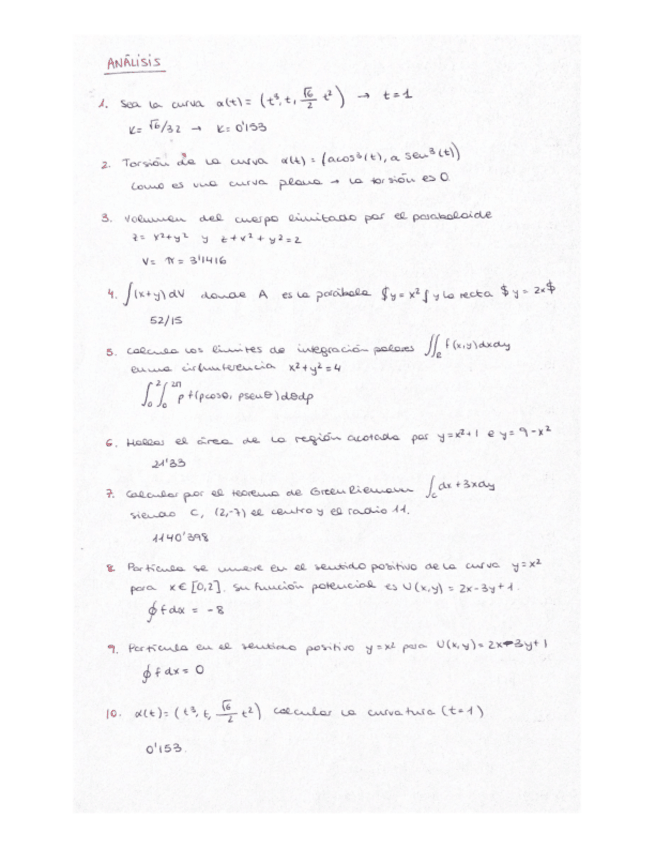 ANÁLISIS
1. Sea la curva α(t) = (t³, t, √6/2 t²) → t=1
K= √6/32 → K= 0'153
2. Torsión de la curva α(t) = (acos³(t), a sen³(t))
como es una curva plana → la torsión es 0
3. Volumen del cuerpo limitado por el paraboloide
z= x²+y² y z+x²+y²=2
V= π = 3'1416
4. ∫(x+y) dV donde A es la parábola $y=x²∫ y la recta $y=2x$
52/15
5. Calcula los límites de integración polares ∬R f(x,y)dxdy
en una circunferencia x²+y²=4
∫₀² ∫₀²π ρ f(ρcosθ, ρsenθ)dθdρ
6. Hallar el área de la región acotada por y=x²+1 e y=9-x²
21'33
7. Calcular por el teorema de Green Riemann ∫c dx+3xdy
siendo C, (2,-7) el centro y el radio 11.
1140'398
8. Partícula se mueve en el sentido positivo de la curva y=x²
para x∈[0,2]. Su función potencial es U(x,y) = 2x-3y+1.
∮f dx = -8
9. Partícula en el sentido positivo y=x² para U(x,y)=2x-3y+1
∮f dx = 0
10. α(t)=(t³, t, √6/2 t²) calcular la curvatura (t=1)
0'153.